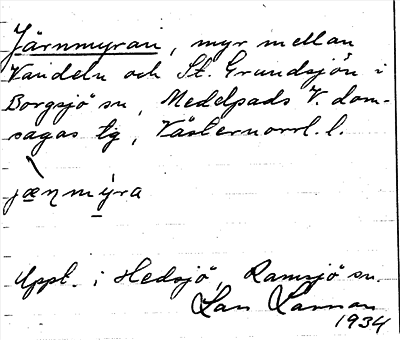 Järnmyran, myr mellan
Vandeln och St. Grundsjön i
Borgsjö sn, Medelpads V. dom-
sagas tg, Västernorrl. l.
jæηmýra
Uppt. i Hedsjö, Ramsjö sn.
1934